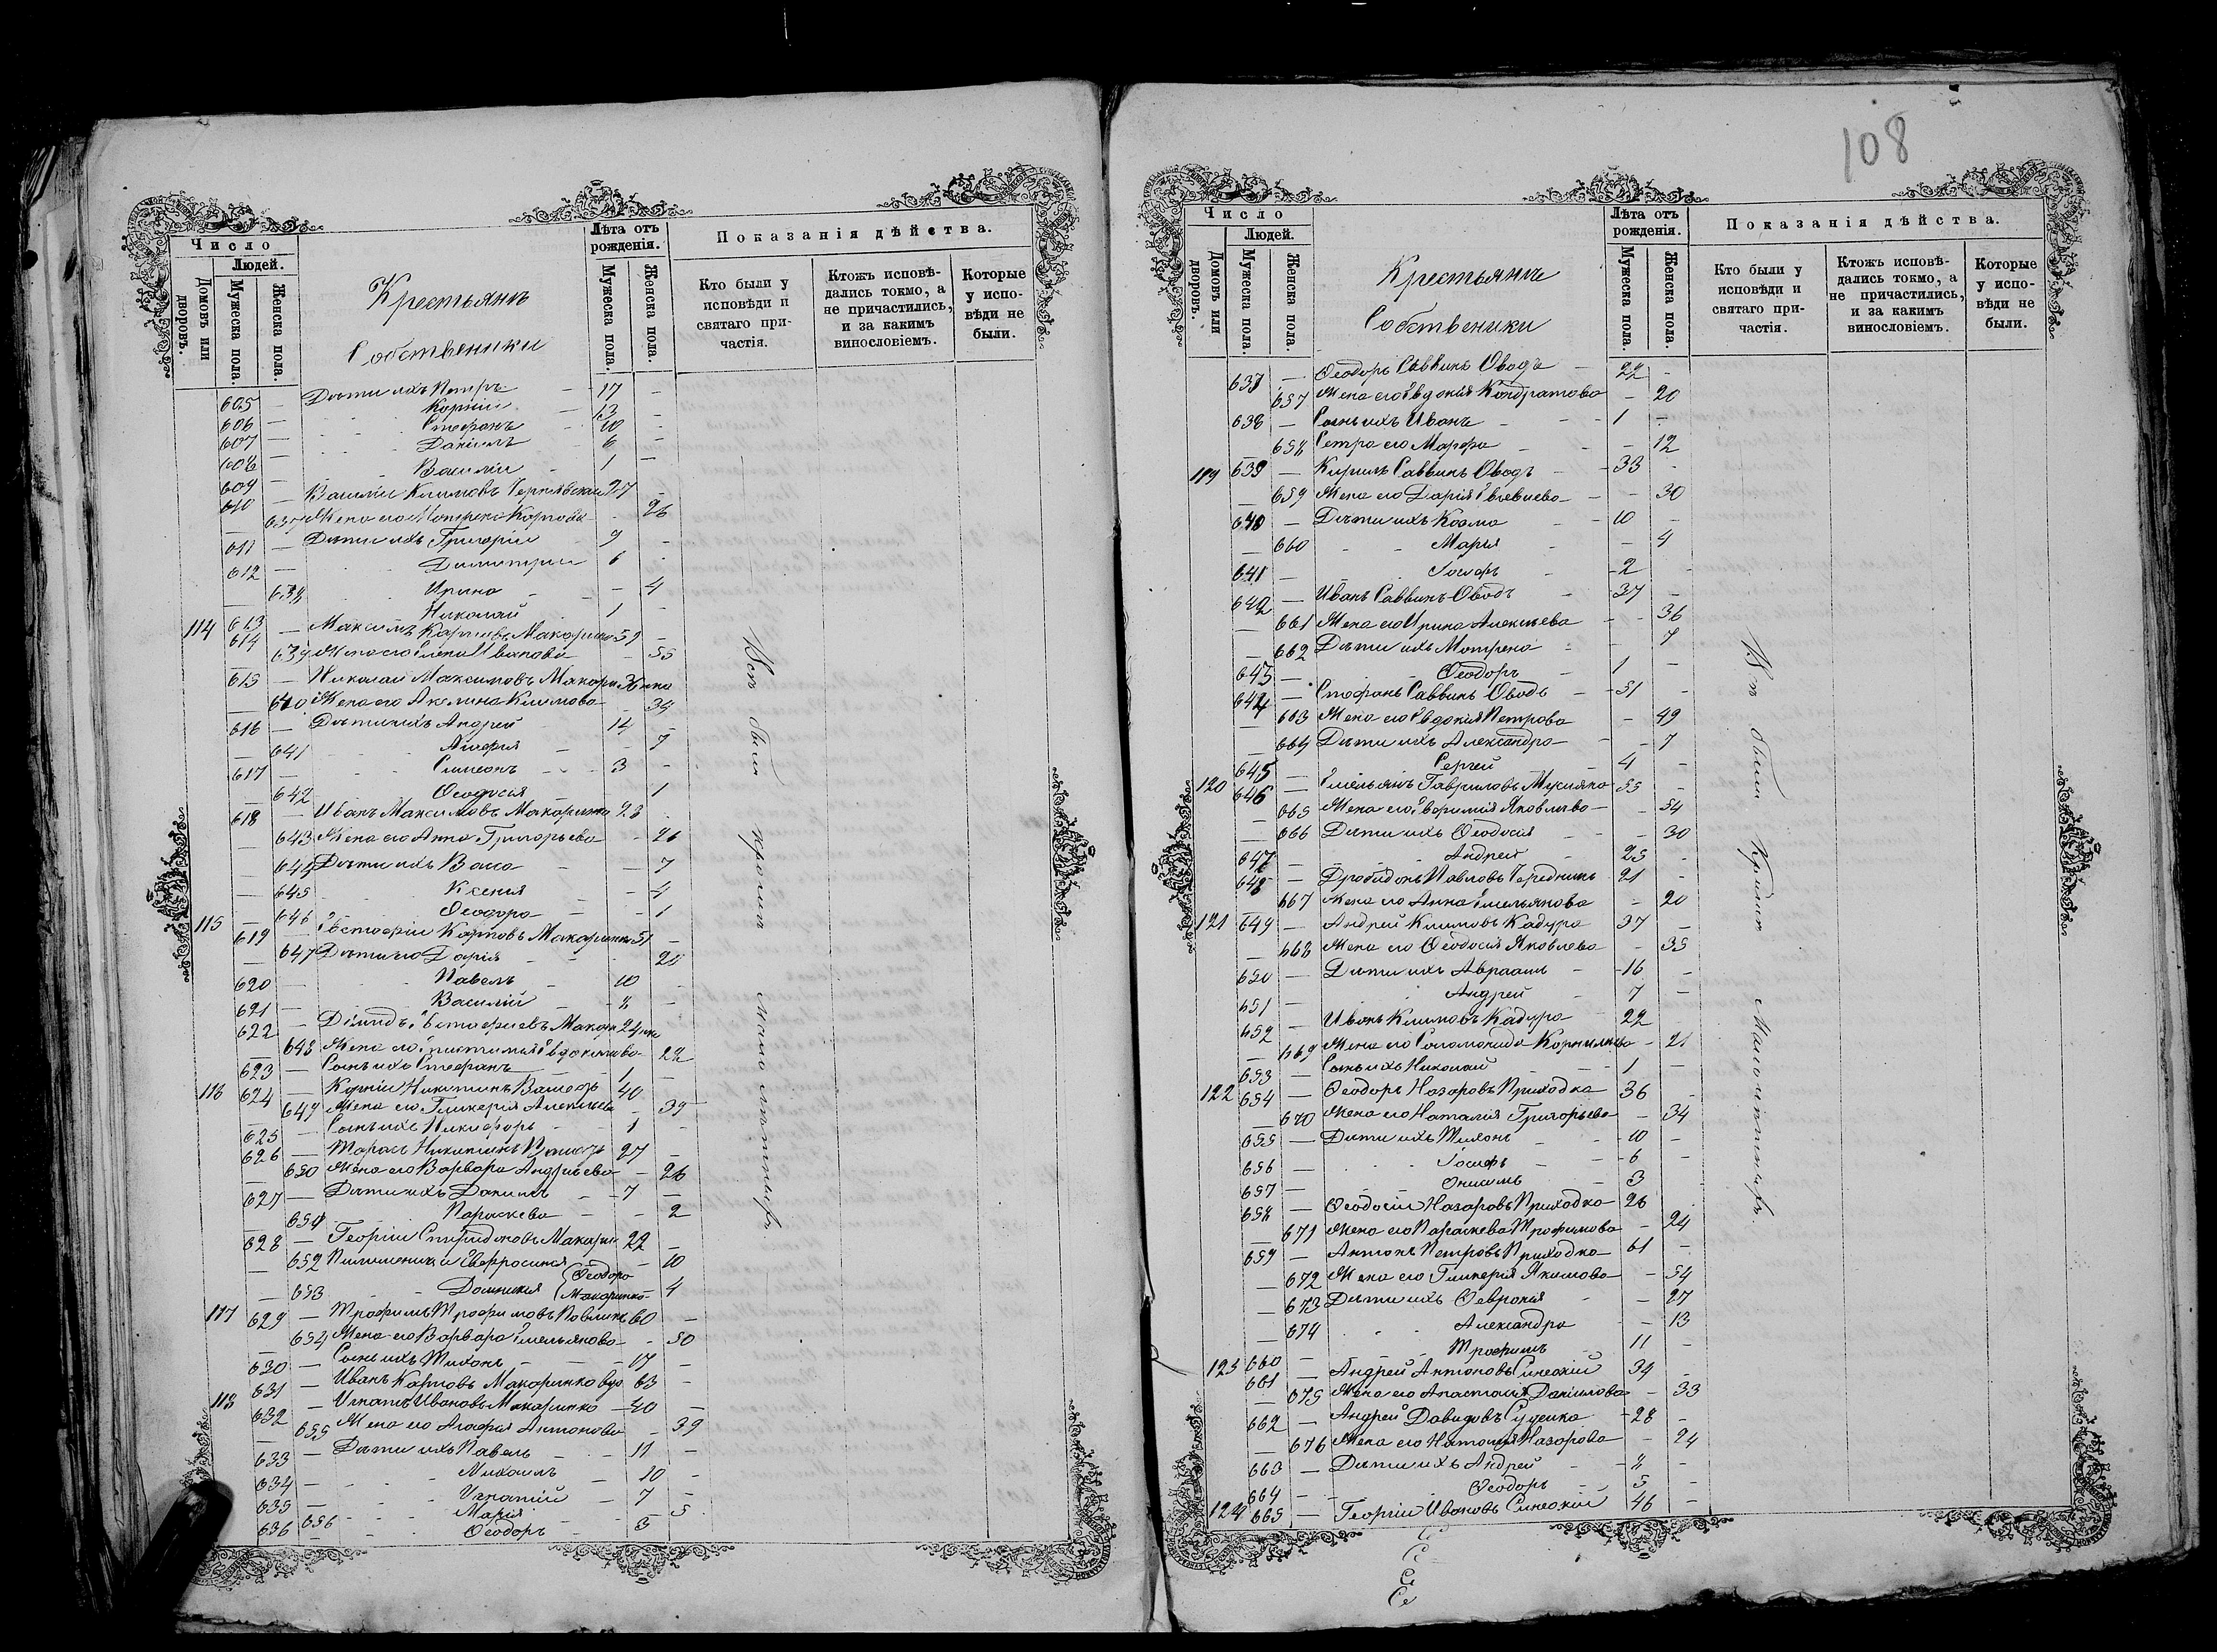 Число
Людей.
Домовъ или дворовъ.
Мужеска пола.
Женска пола.
Крестьянъ
Собственики
Лѣта отъ рожденія.
Мужеска пола.
Женска пола.
Показанія дѣйства.
Кто были у исповѣди и святаго причастія.
Ктожъ исповѣдались токмо, а не причастились, и за какимъ винословіемъ.
Которые у исповѣди не были.
605 — Дѣти ихъ Петръ — 17 —
606 — Корнѣй — 13 —
607 — Стефанъ 10 —
608 — Даніилъ 6 —
609 — Василій 1 —
610 — Василій Климовъ 27 —
637 Жена его Мотрена Карпова — 26
611 — Дѣти ихъ Григорій 9 —
612 — Димитрій 6 —
638 Ирина — 4
613 — Николай 1 —
114 614 — Максимъ Карповъ Макаренко 59 —
639 Жена его Елена Иванова — 55
615 — Николай Максимовъ Макаренко 36
640 Жена его Акилина Климова — 34
616 — Дѣти ихъ Андрей 14 —
641 Агафія — 7
617 — Симеонъ 3 —
642 Феодосія 1
618 — Иванъ Максимовъ Макаренко 28
643 Жена его Анна Григорьева — 26
644 Дѣти ихъ Васса — 7
645 Ксенія — 4
646 Феодора — 1
115 619 — Евстафій Карповъ Макаренко 51 —
647 Дѣти его Дарія 20
620 — Павелъ 10 —
621 — Василій 8 —
622 — Евстафиевъ Макаренко 24
648 Жена его Евдокимова 22
623 — Сынъ ихъ Стефанъ 1 —
116 624 — Корнѣй Никитинъ 40
649 Жена его Гликерія Алексѣева — 39
625 — Сынъ ихъ Никифоръ 1 —
626 — Тарасъ Никитинъ 27 —
650 Жена его Варвара Андрѣева — 26
627 — Дѣти ихъ Даніилъ 7 —
651 Параскева — 2
628 — Георгій Спиридоновъ Макаренко 22 —
652 Племянница Евфросинія — 10
653 Домникія (Феодора Макаренко 4
117 629 — Трофимъ Трофимовъ 60 —
654 Жена его Варвара Емельянова — 50
630 — Сынъ ихъ Тихонъ 17 —
631 — Иванъ Карповъ Макаренко вдо. 63 —
118 632 — Игнатъ Ивановъ Макаренко 40 —
655 Жена его Агафія Антонова — 39
633 — Дѣти ихъ Павелъ 11 —
634 — Михаилъ 10 —
635 — Игнатій 7 —
656 Марія 5
636 Феодоръ 3
Всѣ были кромѣ малолѣтныхъ.
108
Число
Людей.
Домовъ или дворовъ.
Мужеска пола.
Женска пола.
Крестьянъ
Собственики
Лѣта отъ рожденія.
Мужеска пола.
Женска пола.
Показанія дѣйства.
Кто были у исповѣди и святаго причастія.
Ктожъ исповѣдались токмо, а не причастились, и за какимъ винословіемъ.
Которые у исповѣди не были.
637 — Феодоръ Саввинъ Оводъ — 22 —
657 Жена его Евдокія Кондратова — 20
638 — Сынъ ихъ Иванъ — 1 —
658 Сестра его Марфа — 12
119 639 — Кирилъ Саввинъ Оводъ — 33 —
659 Жена его Дарія — 30
640 — Дѣти ихъ Козма — 10 —
660 Марья — 4
641 — Іосифъ — 2
642 — Иванъ Саввинъ Оводъ — 37 —
661 Жена его Ирина Алексѣева — 36
662 Дѣти ихъ Мотрена 7
643 — Феодоръ 1 —
644 — Стефанъ Саввинъ Оводъ — 51 —
663 Жена его Евдокія Петрова — 49
664 Дѣти ихъ Александра — 7
645 — Сергей 4 —
120 646 — Емельянъ Гавриловъ 55 —
665 Жена его Евфимія Яковлева — 54
666 Дѣти ихъ Феодосія — 30
647 — Андрей 25 —
648 — Павловъ Чередникъ 21 —
667 Жена его Анна Емельянова — 20
121 649 — Андрей Климовъ Кадура 37 —
668 Жена его Феодосія Яковлева — 35
650 — Дѣти ихъ Авраамъ — 16 —
651 — Андрей 7 —
652 — Иванъ Климовъ Кадура 22 —
669 Жена его Соломонида Корнильева — 21
653 — Сынъ ихъ Николай 1 —
122 654 — Феодоръ Назаровъ Приходко 36 —
670 Жена его Наталія Григорьева — 34
655 — Дѣти ихъ Тихонъ — 10 —
656 — Іосифъ — 6 —
657 — Онисимъ 3
658 — Феодосій Назаровъ Приходко 26
671 Жена его Параскева Трофимова — 24
659 — Антонъ Петровъ Приходко 61 —
672 Жена его Гликерія Якимова — 54
673 Дѣти ихъ Февронія — 27
674 Александра — 13
660 — Трофимъ 11 —
123 661 — Андрей Антоновъ 34 —
675 Жена его Анастасія Даніилова — 33
662 — Андрей Давидовъ 28 —
676 Жена его Наталія Назарова — 24
663 — Дѣти ихъ Андрей — 8 —
664 — Феодоръ — 5 —
124 665 — Георгій Ивановъ 46 —
Всѣ были кромѣ малолѣтныхъ.